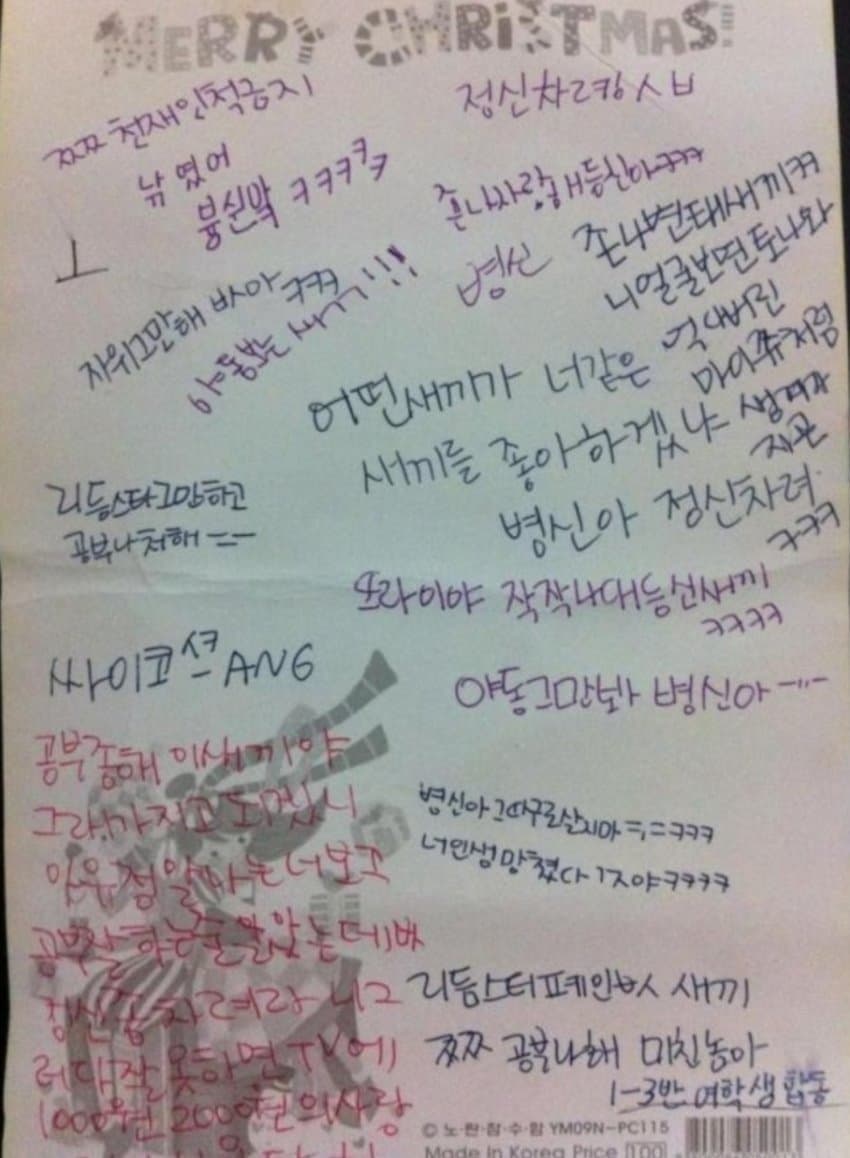 MERRY CHRISTMAS!
쯔쯔 천재인척금지
정신차려킹 ㅅㅂ
낚였어
븅신망 ㅋㅋㅋㅋㅋ
존나사랑해등신아ㅋㅋㅋ
병신
존나변태새끼ㅋㅋ
니얼굴보면토나와
ㅗ
자위그만해 ㅋㅋㅋ
야동보는 새끼!!!
어떤새끼가 너같은
새끼를 좋아하겠냐
마이쮸처럼
생겨가
지곤
병신아 정신차려
ㅋㅋㅋ
리듬스타그만하고
공부나처해 ㅡㅡ
또라이야 작작나대등신새끼
ㅋㅋㅋㅋ
싸이코ANG
야동그만봐 병신아 ㅡㅡ
공부좀해 이새끼야
그래가지고 되겠니
너보고
공부잘하는줄알았는데
정신좀차려라 니그
러다잘못하면 TV에
1000원 2000원의사랑
병신아 그따구로살지마 ㅋㅋㅋ
너인생망쳤다 ㅋㅋㅋㅋ
리듬스터폐인 새끼
쯔쯔 공부나해 미친놈아
1-3반 여학생 합동
© 노·란·잠·수·함 YM09N-PC115
Made in Korea Price 100